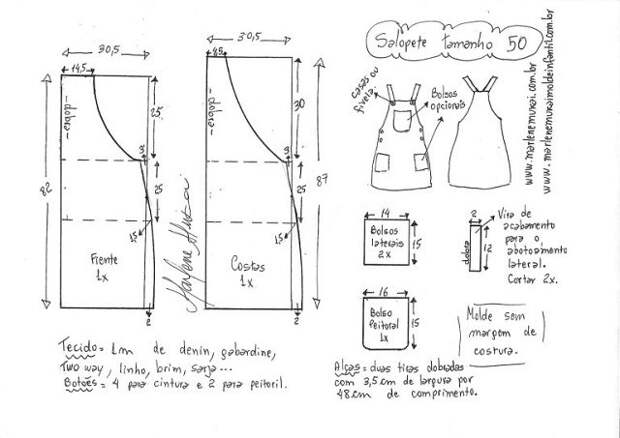 Salopete tamanho 50
www.marlenemukai.com.br
www.marlenemukaimoldeinfantil.com.br
30,5
14,5
dobra
25
3
25
1,5
82
Frente
1x
2
Marlene Mukai
30,5
4,5
dobra
30
3
25
1,5
87
Costas
1x
2
casas ou
fivela
Bolsos
opcionais
14
Bolsos
laterais
2x
15
2
dobra
12
Vira de
acabamento
para o
abotoamento
lateral.
Cortar 2x.
16
Bolso
Peitoral
1x
15
Molde sem
margem de
costura.
Tecido= 1m de denin, gabardine,
Two way, linho, brim, sarja...
Botões= 4 para cintura e 2 para peitoril.
Alças= duas tiras dobradas
com 3,5cm de largura por
48cm de comprimento.